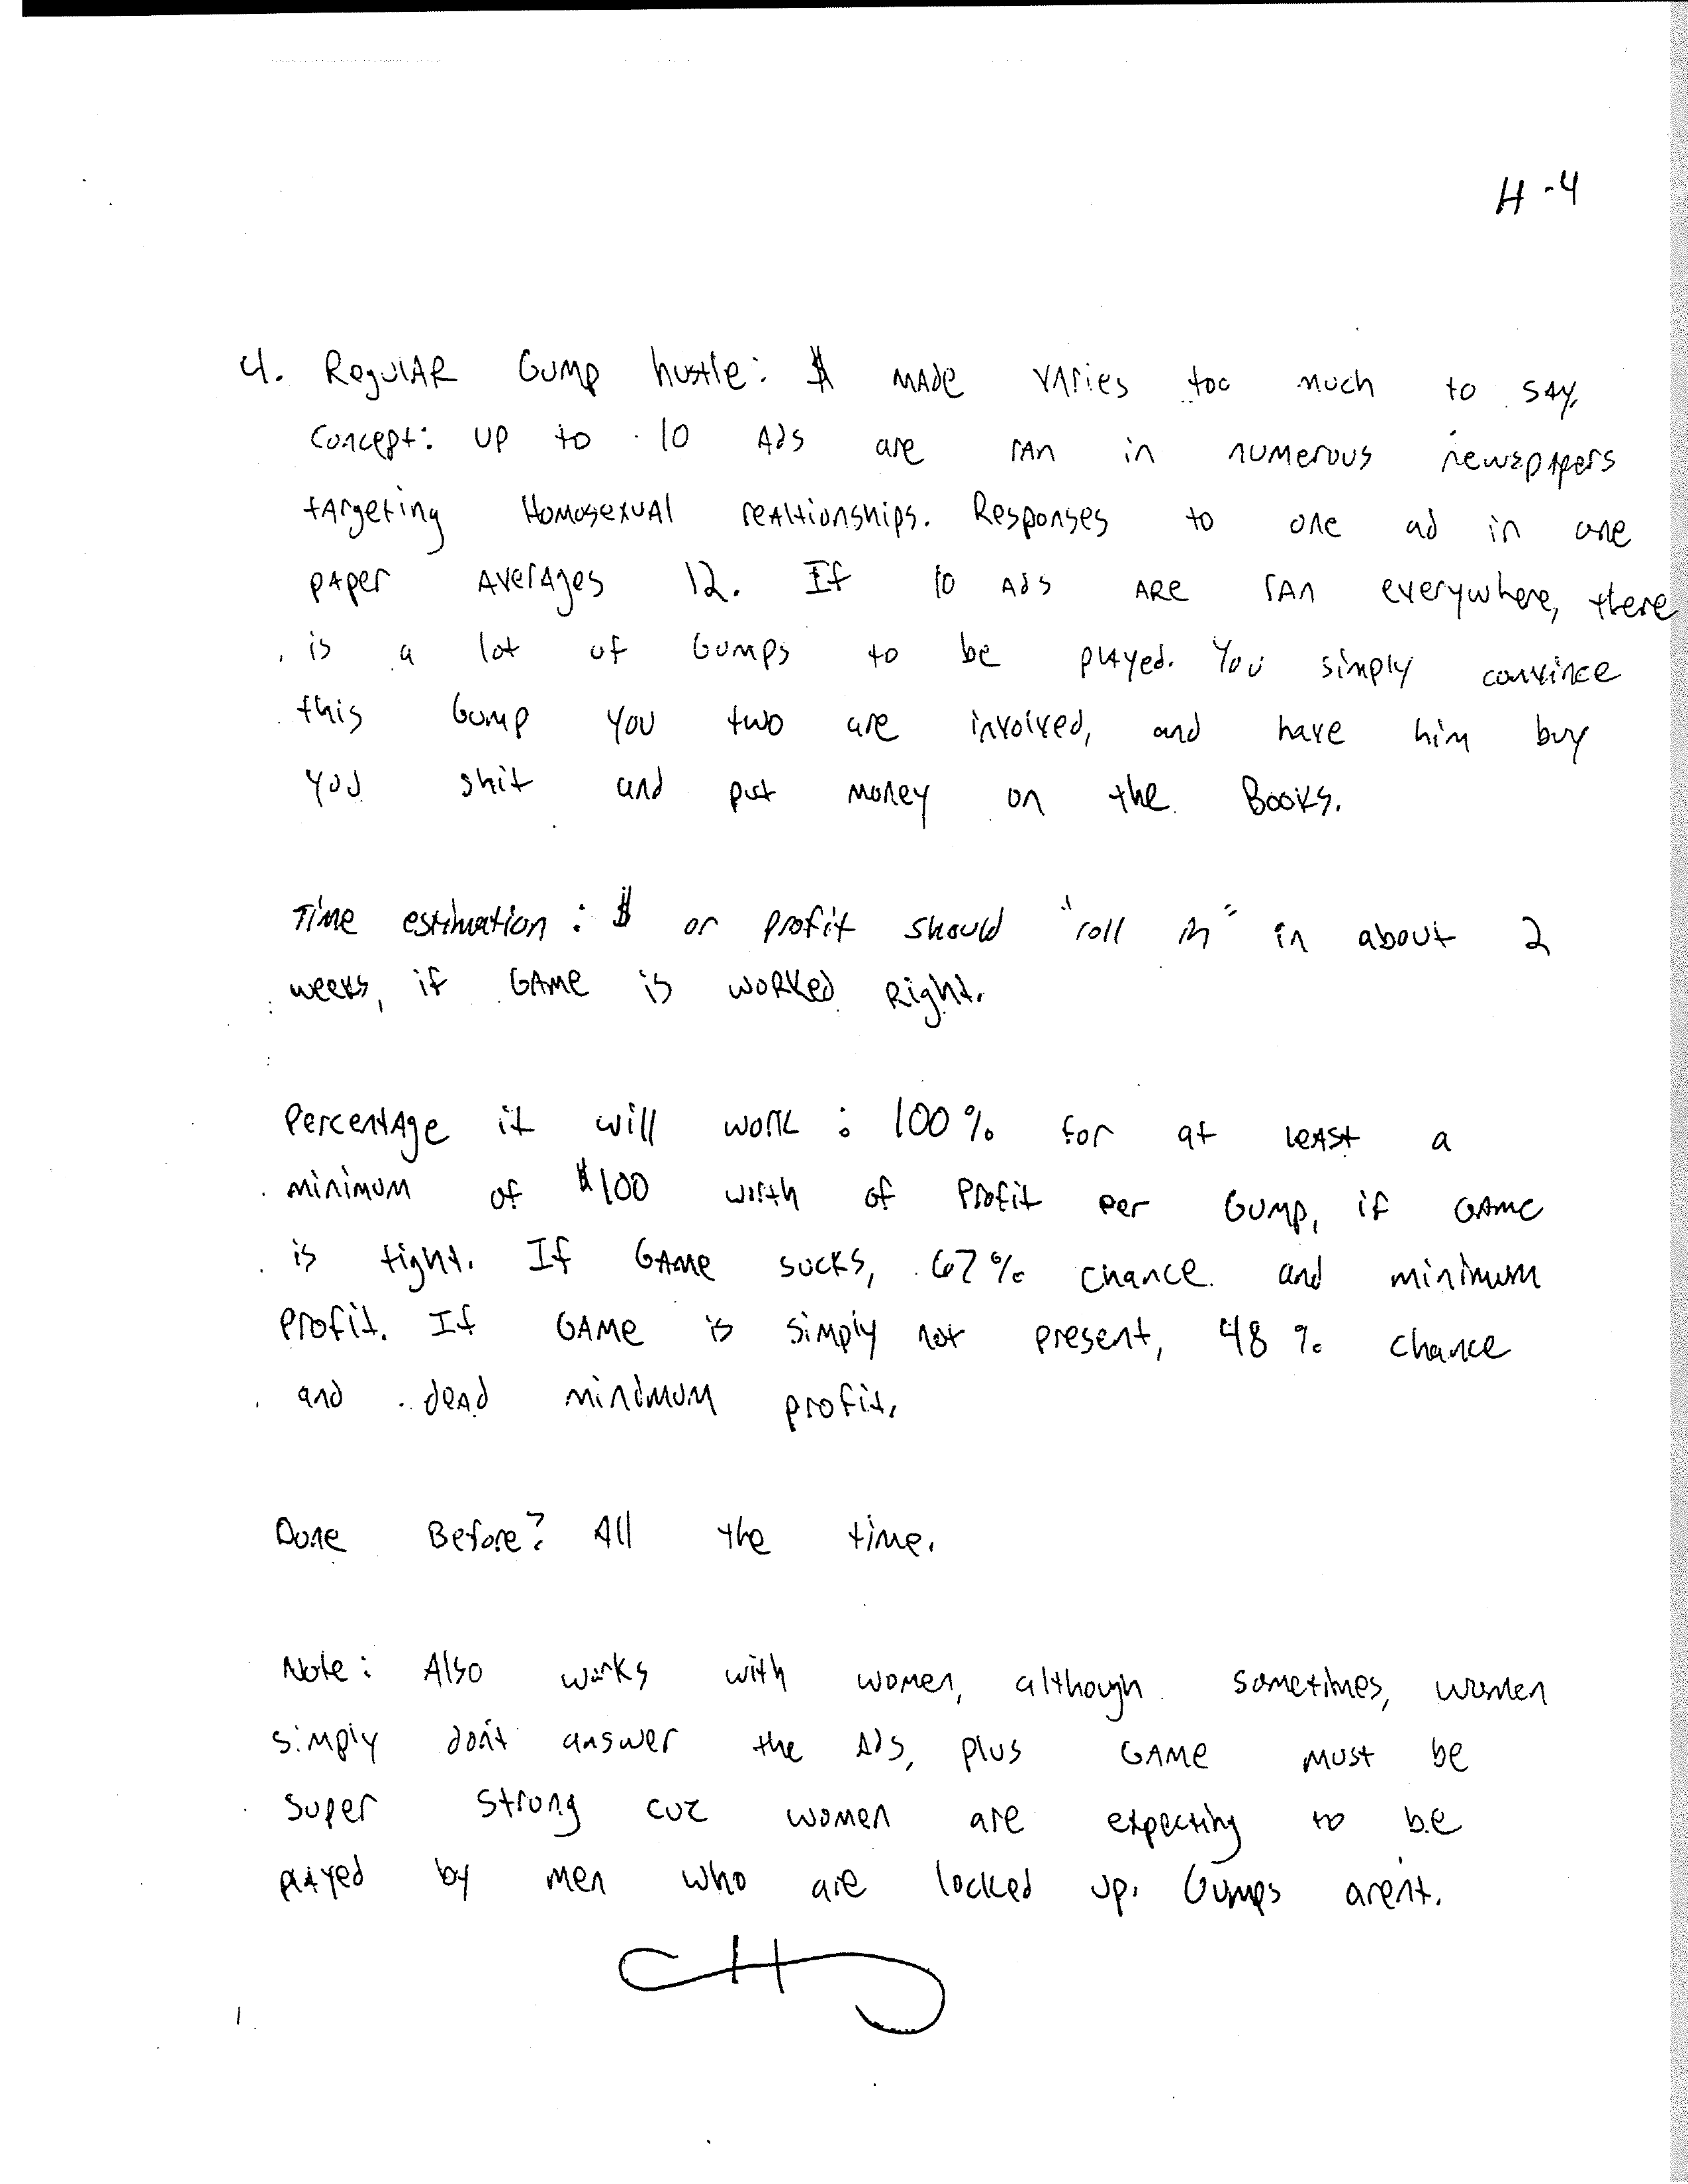 H-4
4. Regular Gump hustle: $ made varies too much to say.
Concept: up to 10 Ads are ran in numerous newspapers
targeting Homosexual realtionships. Responses to one ad in one
paper averages 12. If 10 ads are ran everywhere, there
is a lot of Gumps to be played. You simply convince
this Gump you two are involved, and have him buy
you shit and put money on the Books.
Time estimation: $ or profit should "roll in" in about 2
weeks, if GAME is worked Right.
Percentage it will work: 100% for at least a
minimum of $100 worth of Profit per Gump, if GAME
is tight. If GAME sucks, 67% chance and minimum
Profit. If GAME is simply not present, 48% chance
and dead minimum profit.
Done Before? All the time.
Note: Also works with women, although sometimes, women
simply don't answer the Ads, plus GAME must be
super strong cuz women are expecting to be
played by men who are locked up. Gumps arent.